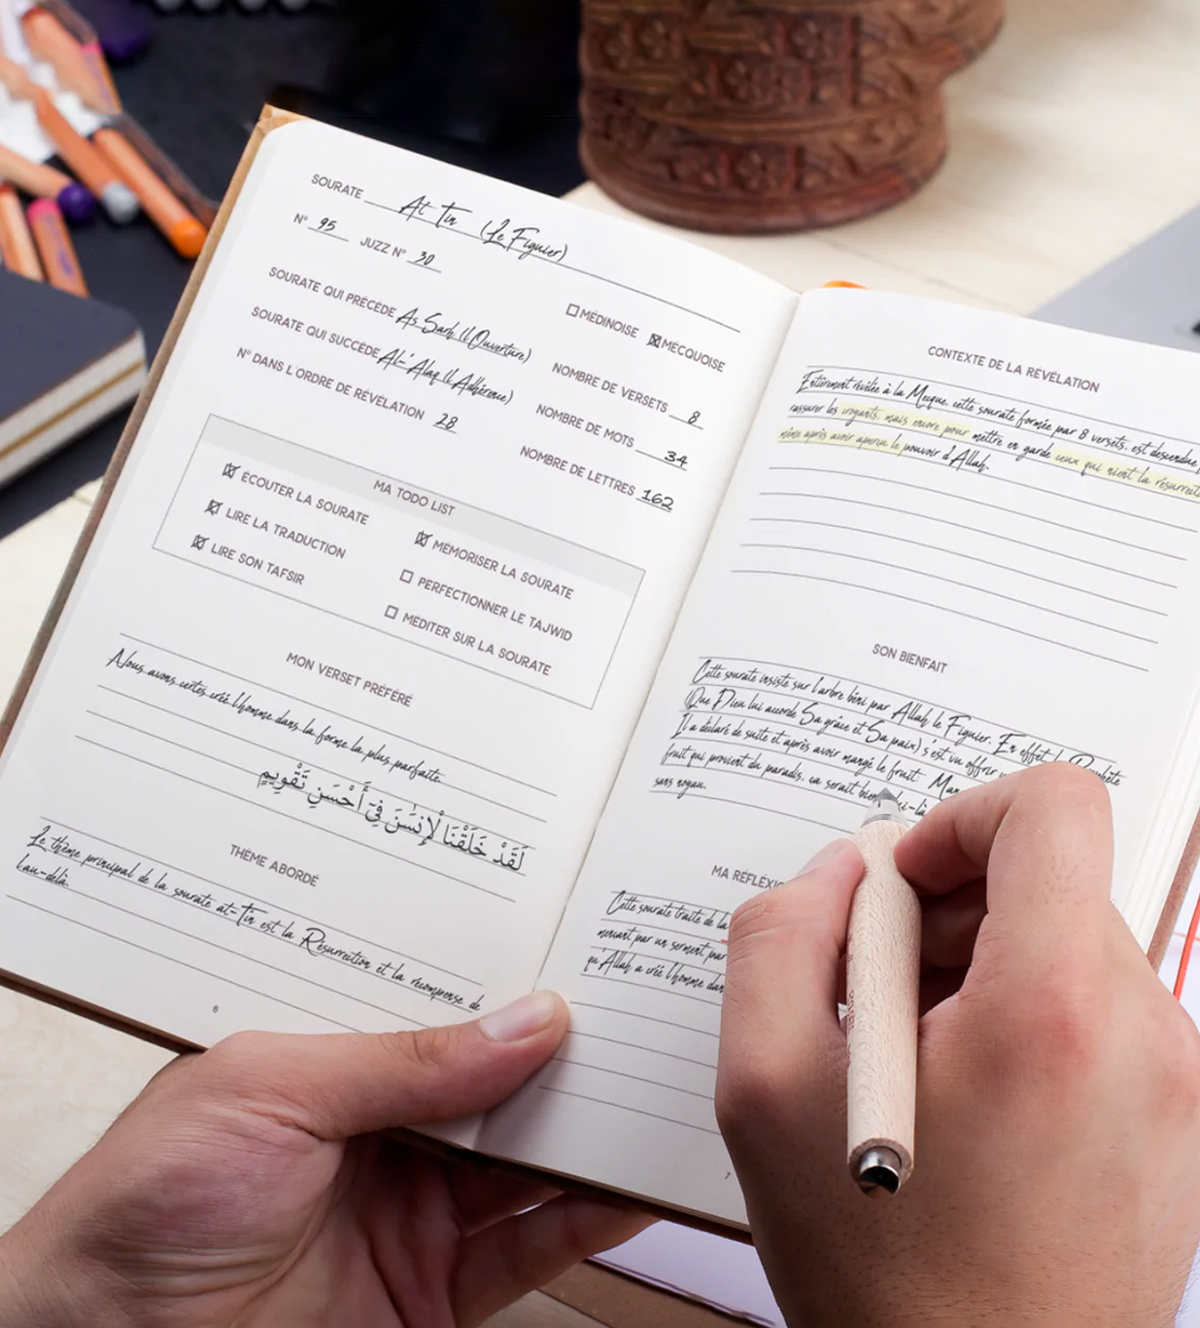 SOURATE At Tin (Le Figuier)
N° 95 JUZZ N° 30
MÉDINOISE MECQUOISE
SOURATE QUI PRÉCÈDE As Sarh (L'Ouverture)
SOURATE QUI SUCCÈDE Al-'Alaq (L'Adhérence)
N° DANS L'ORDRE DE RÉVÉLATION 28
NOMBRE DE VERSETS 8
NOMBRE DE MOTS 34
NOMBRE DE LETTRES 162
MA TODO LIST
ÉCOUTER LA SOURATE
LIRE LA TRADUCTION
LIRE SON TAFSIR
MÉMORISER LA SOURATE
PERFECTIONNER LE TAJWID
MÉDITER SUR LA SOURATE
MON VERSET PRÉFÉRÉ
Nous avons certes créé l'homme dans la forme la plus parfaite
لَقَدْ خَلَقْنَا لْإِنسَٰنَ فِىٓ أَحْسَنِ تَقْوِيمٍ
THÈME ABORDÉ
Le thème principal de la sourate at-Tin est la Résurrection et la récompense de
l'au-delà.
6
CONTEXTE DE LA RÉVÉLATION
Entièrement révélée à la Mecque, cette sourate formée par 8 versets, est descendue
rassurer les croyants, mais encore pour mettre en garde ceux qui nient la
même après avoir aperçu le pouvoir d'Allah.
SON BIENFAIT
Cette sourate insiste sur l'arbre béni par Allah le Figuier. En effet
(Que Dieu lui accorde Sa grâce et Sa paix) s'est vu offrir
Il a déclaré de suite et après avoir mangé le fruit:
fruit qui provient du paradis, ça serait bien
sans noyau.
MA
Cette sourate traite de la
mençant par un serment par
qu'Allah a créé l'homme dans
7